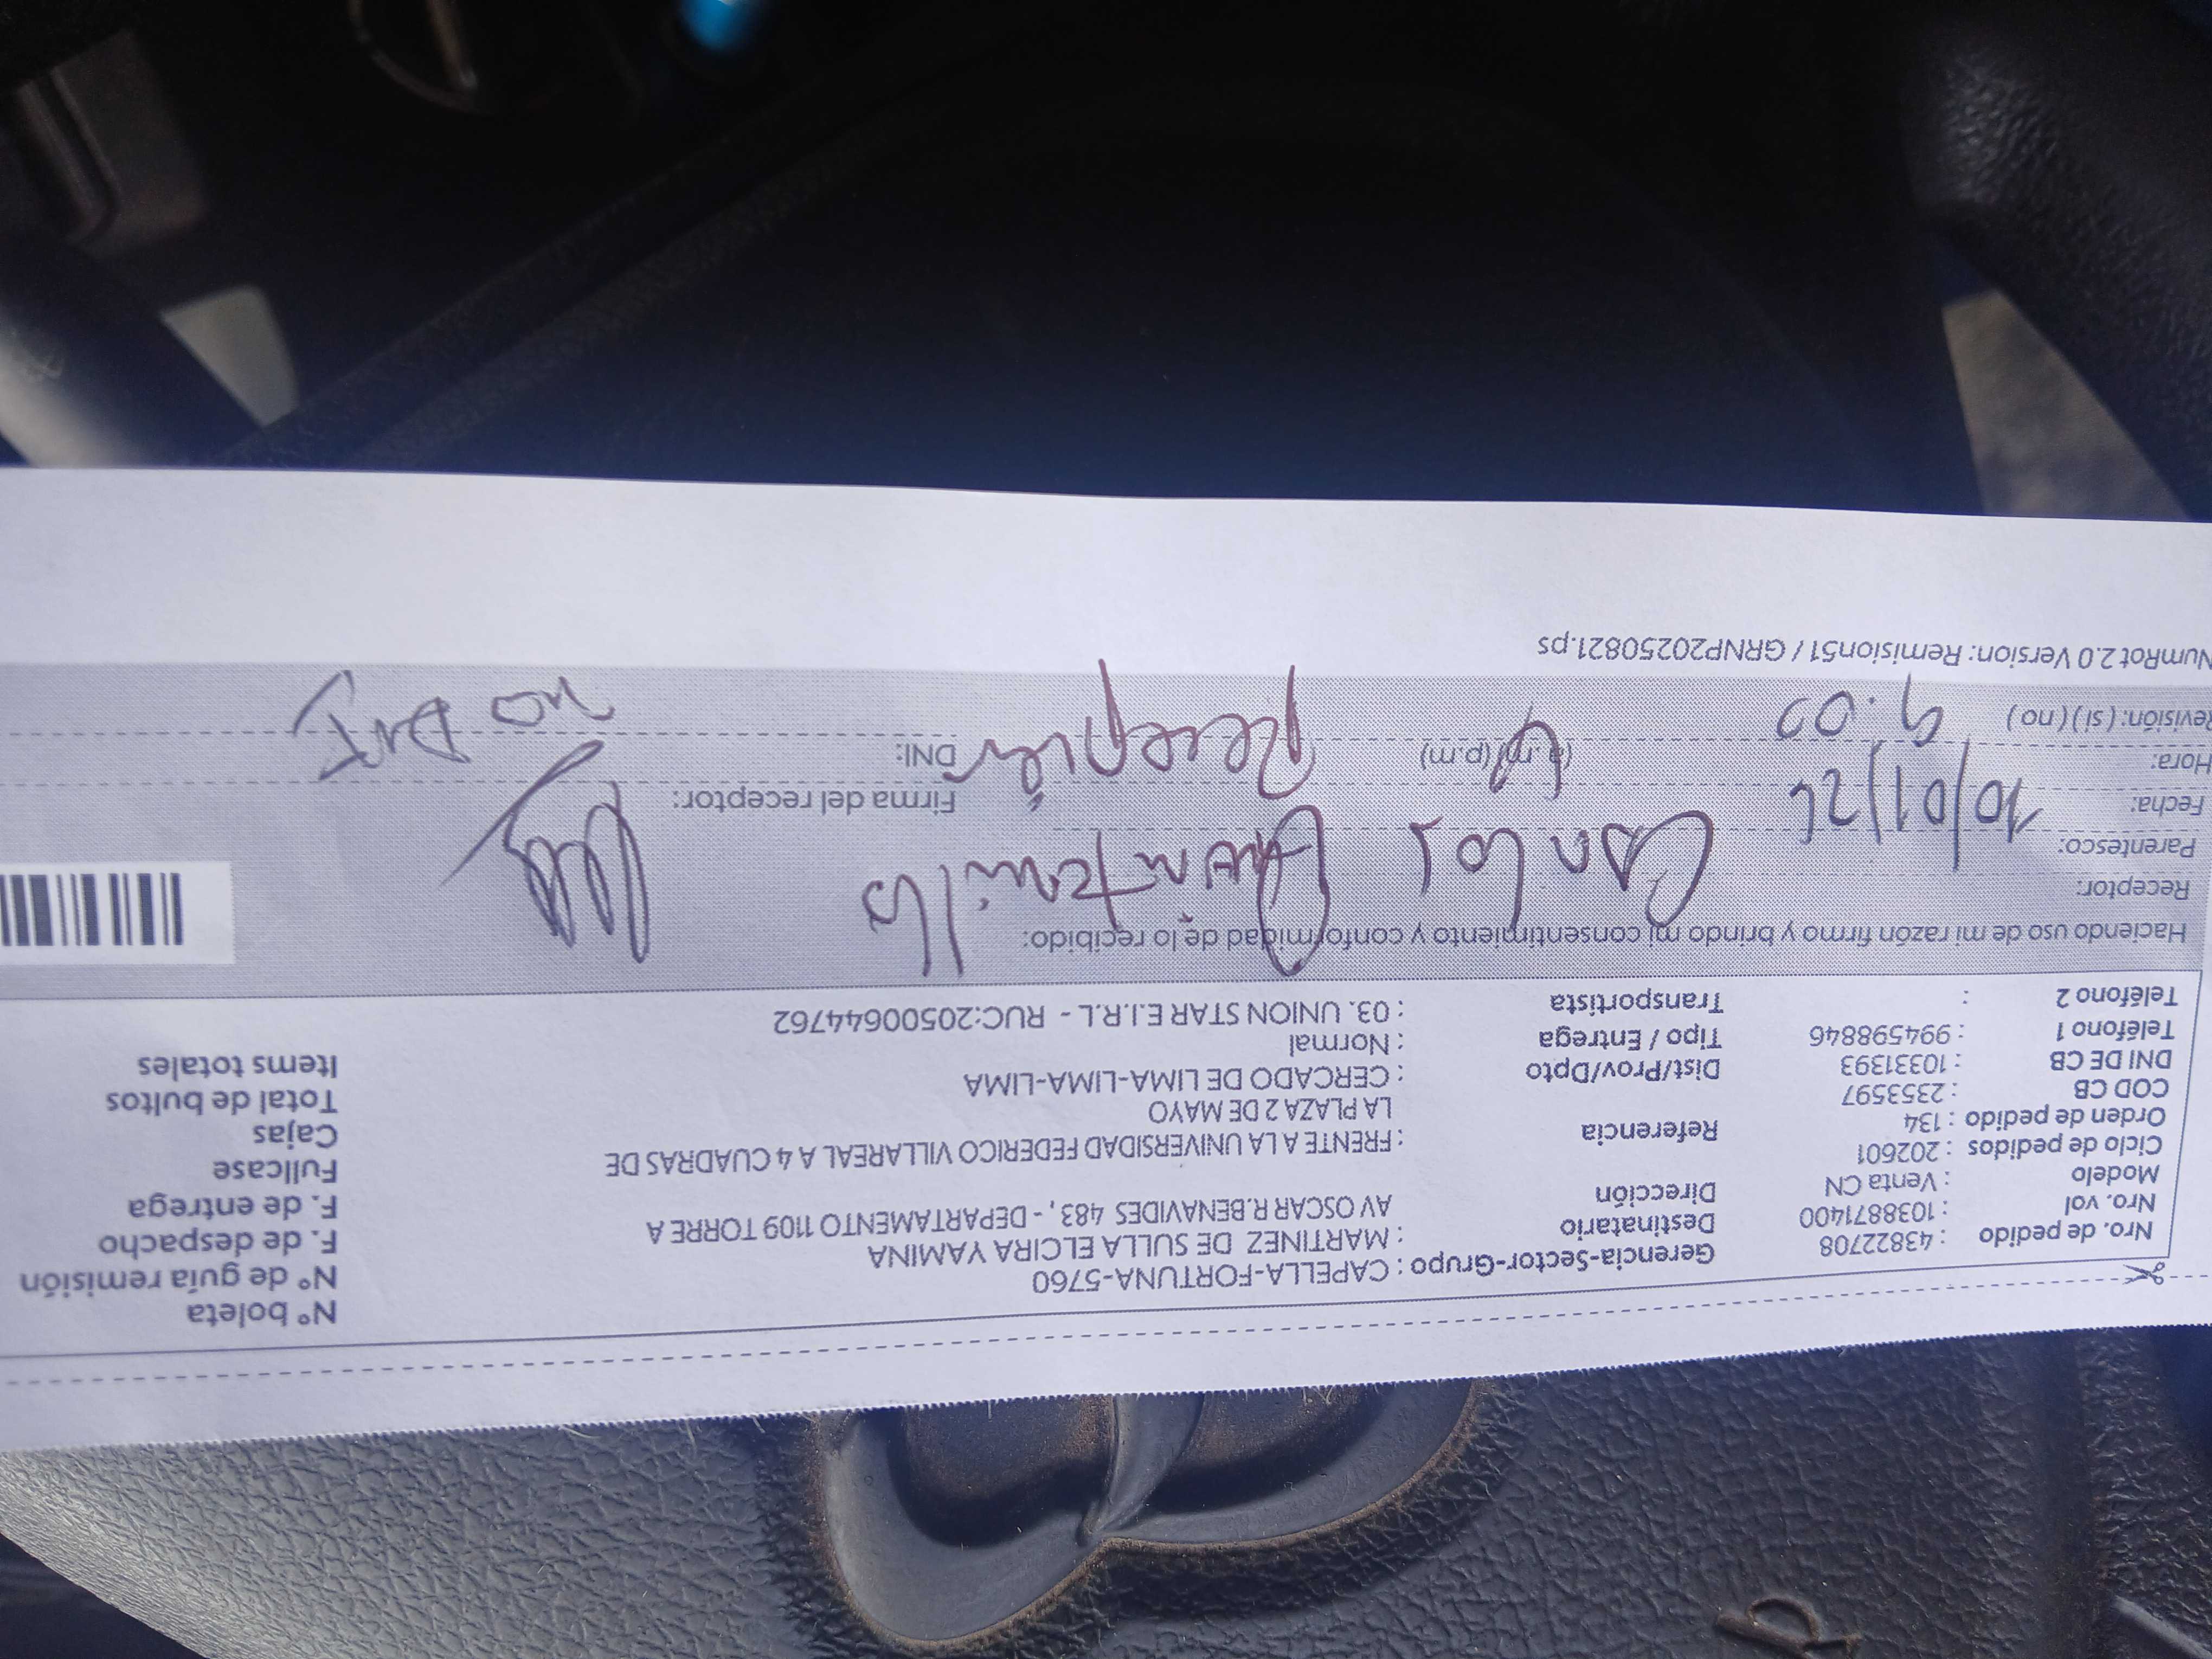 Nº boleta
Gerencia-Sector-Grupo : CAPELLA-FORTUNA-5760
Nº de guía remisión
Nro. de pedido : 43822708
Destinatario : MARTINEZ DE SULLA ELCIRA YAMINA
F. de despacho
Nro. vol : 1038871400
Dirección AV OSCAR R.BENAVIDES 483, - DEPARTAMENTO 1109 TORRE A
F. de entrega
Modelo : Venta CN
Fullcase
Ciclo de pedidos : 202601
Referencia : FRENTE A LA UNIVERSIDAD FEDERICO VILLAREAL A 4 CUADRAS DE
LA PLAZA 2 DE MAYO
Cajas
Orden de pedido : 134
Total de bultos
COD CB : 2353597
Dist/Prov/Dpto : CERCADO DE LIMA-LIMA-LIMA
Items totales
DNI DE CB : 10331393
Tipo / Entrega : Normal
Teléfono 1 : 994598846
Transportista : 03. UNION STAR E.I.R.L - RUC:20500644762
Teléfono 2 :
Haciendo uso de mi razón firmo y brindo mi consentimiento y conformidad de lo recibido:
Receptor: Carlos
Parentesco:
Fecha: 10/01/26
Firma del receptor:
Hora: (a.m) (p.m) Recepción
DNI: NO DNI
Revisión: (si) (no) 9:00
NumRot 2.0 Version: Remision51 / GRNP20250821.ps